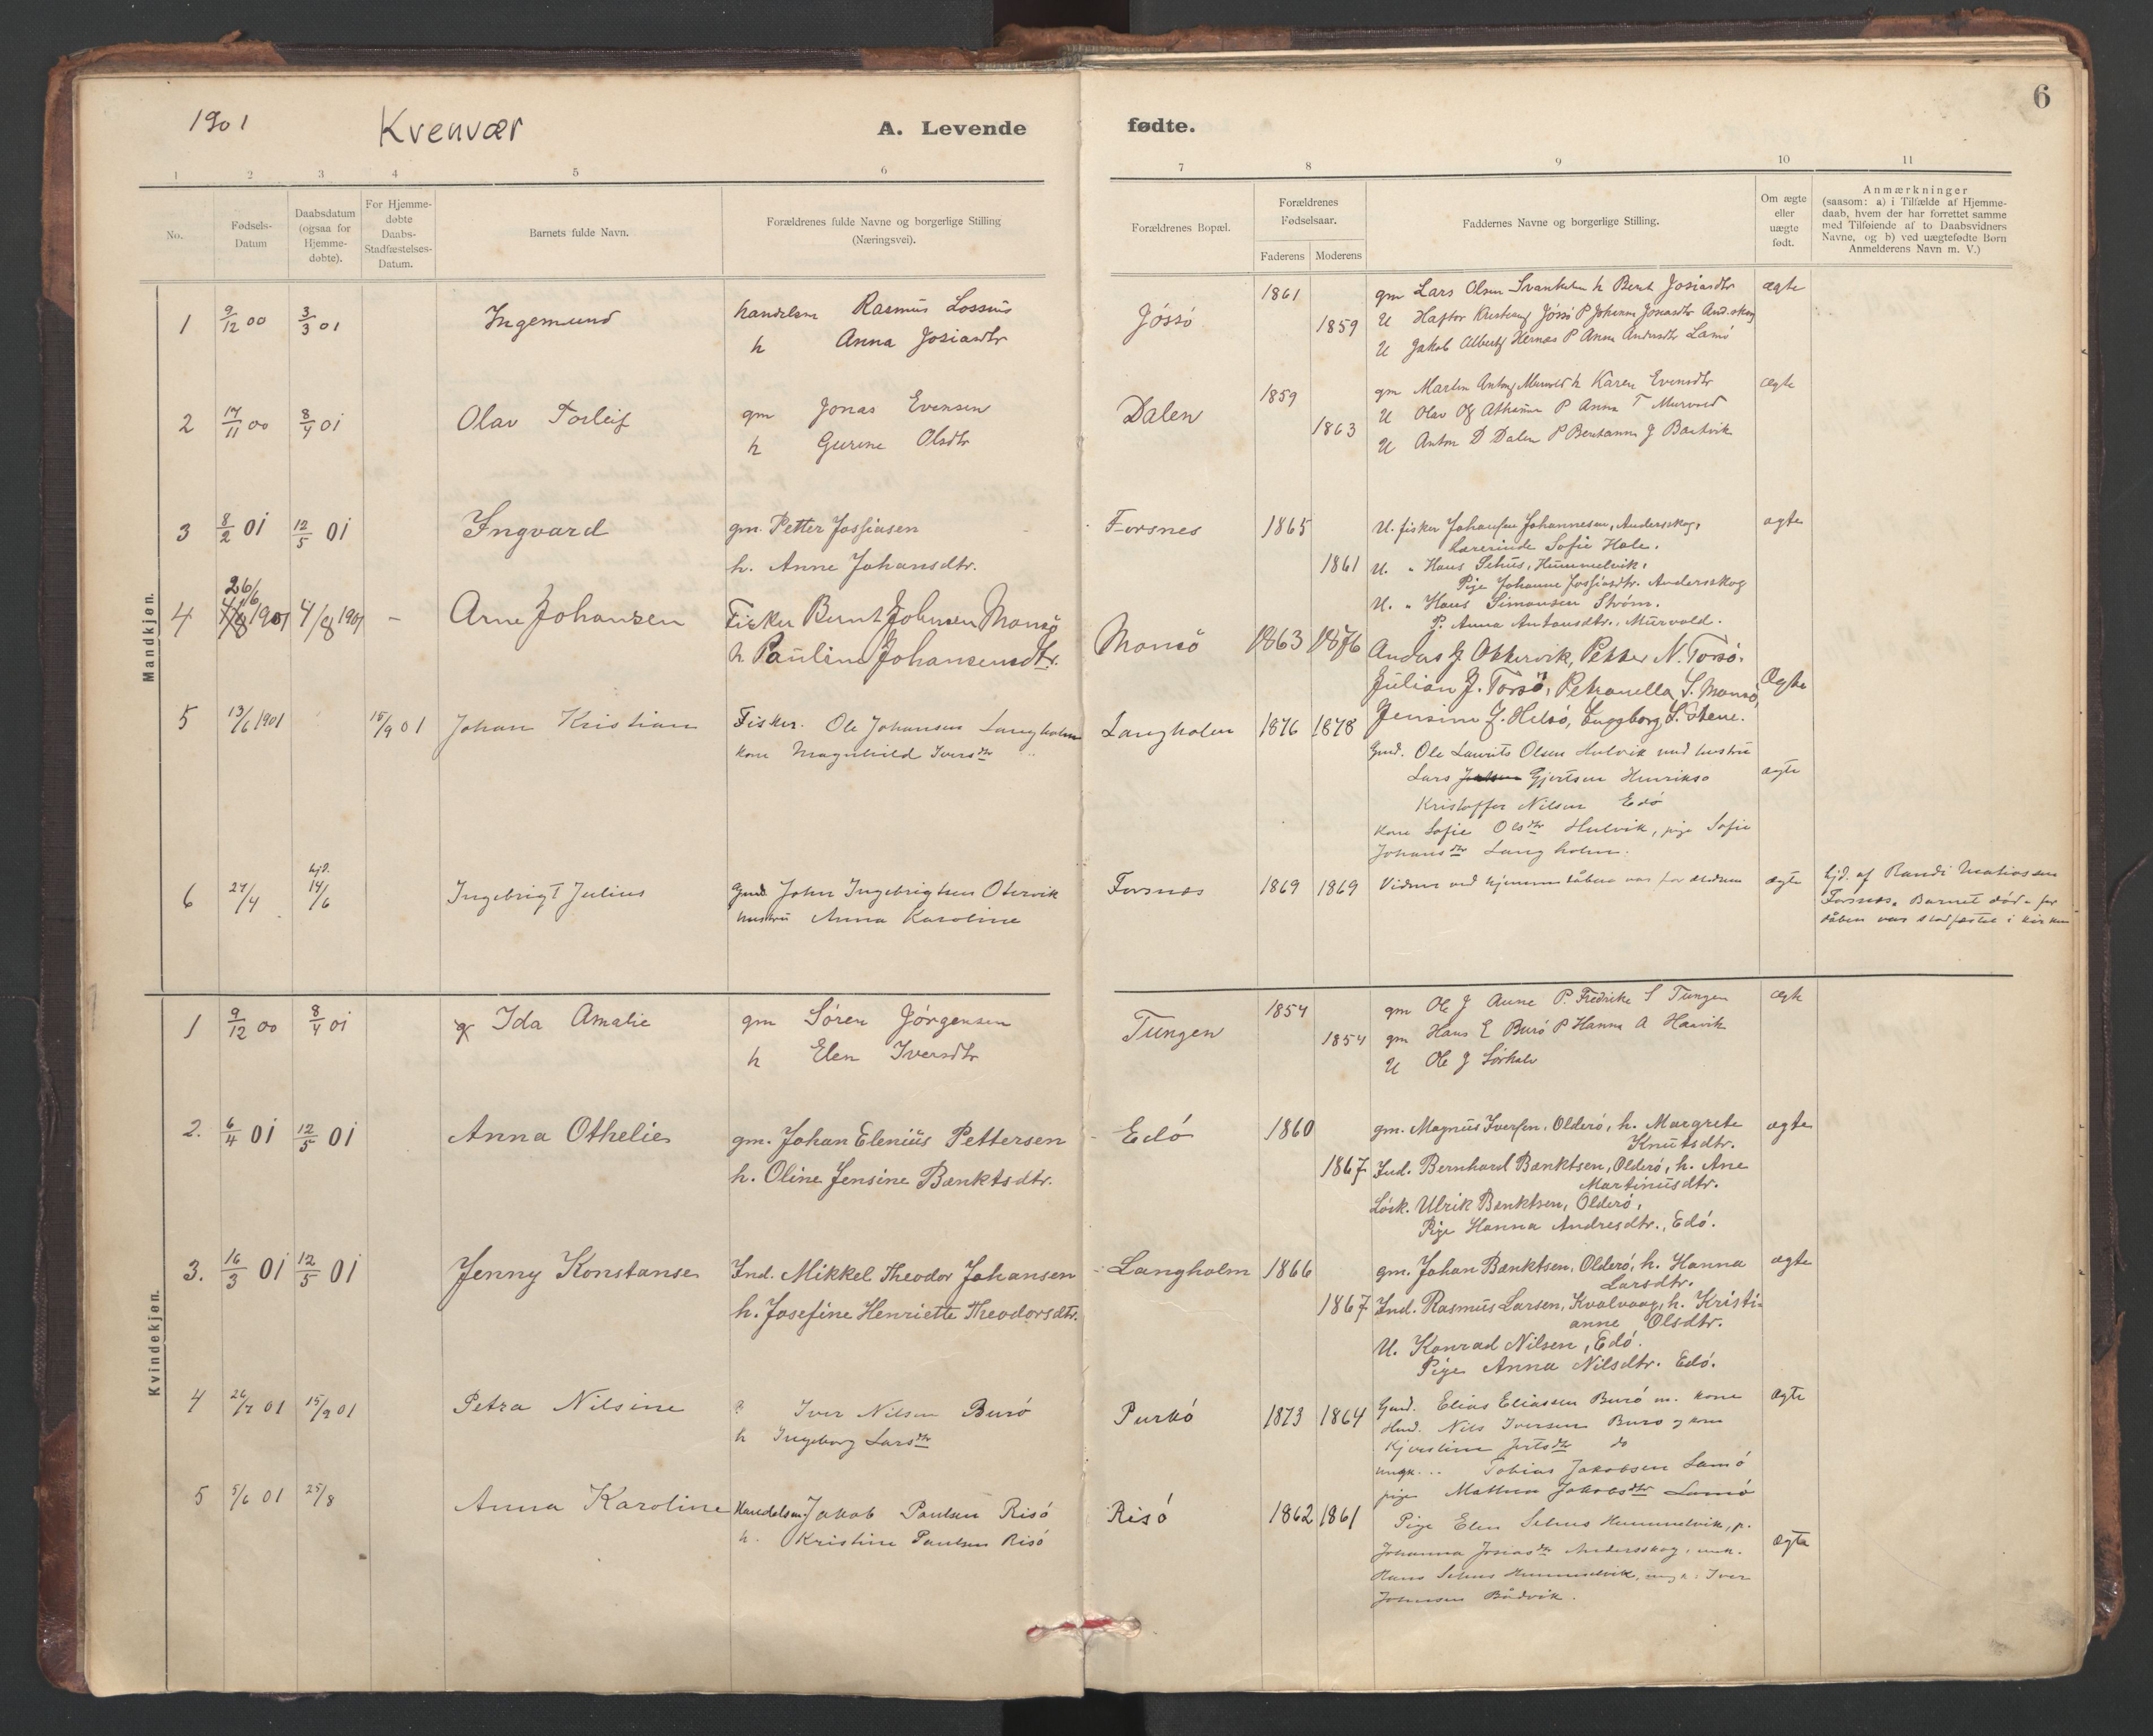 1901
Kvenvær
A. Levende fødte.
6
1 2 3 4 5 6 7 8 9 10 11
No.
Fødsels-
Datum
Daabsdatum
(ogsaa for
Hjemme-
døbte).
For Hjemme-
døbte
Daabs-
Stadfæstelses-
Datum.
Barnets fulde Navn.
Forældrenes fulde Navne og borgerlige Stilling
(Næringsvei).
Forældrenes Bopæl.
Forældrenes
Fødselsaar.
Faderens Moderens
Faddernes Navne og borgerlige Stilling.
Om ægte
eller
uægte
født.
Anmærkninger
(saasom: a) i Tilfælde af Hjemme-
daab, hvem der har forrettet samme
med Tilføiende af to Daabsvidners
Navne, og b) ved uægtefødte Børn
Anmelderens Navn m. V.)
Mandkjøn.
1 9/12 00 3/3 01 Ingemund handelsm Rasmus Lossius Jóssó 1861 gm Lars Olsen Svankilm h Berit Josiasdtr ægte
h Anna Josiasdtr 1859 U Haftor Jóssó P Johanna Josiasdtr Andskog
U Jakob Hernæs P Anna Andersdtr Lamó
2 17/11 00 8/4 01 Olav Torleif gm Jonas Evensen Dalen 1859 gm Martin Murvold h Karen Evensdtr ægte
h Gurine Olsdtr 1863 U Olav P Anna T Murvold
U Anton D Dalen P Bentanna J Bartvik
3 8/2 01 12/5 01 Ingvard gm. Petter Jossiasen Forsnes 1865 U. fisker Johannesen, Andersskog,
ægte
Lærerinde Sofie Hole.
h. Anne Johansdtr. 1861 U. " Hans Sehus, Hummelvik,
Pige Johanne Jossiasdtr. Andersskog
U. " Hans Simonsen Strøm.
P. Anna Antonsdtr. Murvold.
26/6
4 1901 4/8 1901 – Arne Johansen Fisker Bernt Johnsen Monsö Monsö 1863 1876 Anders J Ottervik, Petter N. Torsö.
h Pauline Johansensdtr. Julian J. Torsö, Petronella S. Monsö, Ægte
Jensine J. Helsö, Inggborg S. Stene.
5 13/6 1901 15/9 01 Johan Kristian Fisker. Ole Johansen Langholm Langholm 1876 1878
kone Magnhild Iversdtr
Gmd. Ole Laurits Olsen Hulvik med hustru
Lars Gjertsen Henriksø ægte
Kristoffer Nilsen Edö
Kone Sofie Olsdtr Hulvik, pige Sofie
Johansdtr Langholm.
6 24/4 hjd. 14/6 Ingebrigt Julius Gmd. John Ingebrigtsen Otervik Forsnes 1869 1869 Vidner ved hjemmedåben var forældrene ægte hjd. af Randi Matiassen
hustru Anna Karoline
Forsnes. Barnet död før
dåben var stadfæstet i kirken
Kvindekjøn.
1 9/12 00 8/4 01 Ida Amalie gm Sören Jörgensen Tungen 1854 gm Ole J Aune P. Fredrike S Tungen ægte
h Elen Iversdtr 1854 gm Hans E Buró P Hanna A Hasvik
U Ole J Sórhale
2. 6/4 01 12/5 01 Anna Othelie gm. Johan Elenius Pettersen Edó 1860 gm. Magnus Iversen, Olderó, h. Margrete ægte
Knutsdtr.
h. Oline Jensine Bænktsdtr. 1867. Ind. Bernhard Bænktsen, Olderó, h. Ane
Martinusdtr.
Lósk. Ulrik Bænktsen, Olderó,
Pige Hanna Andresdtr., Edó.
3. 16/3 01 12/5 01 Jenny Konstanse Ind. Mikkel Theodor Johansen Langholm 1866 gm. Johan Bænktsen, Olderó, h. Hanna ægte
Larsdtr.
h. Josefine Henriette Theodorsdtr. 1867. Ind. Rasmus Larsen, Kvalvaag, h. Kristi-
anne Olsdtr.
U. Konrad Nilsen, Edó.
Pige Anna Nilsdtr. Edó.
4 26/7 01 15/9 01 Petra Nilsine ? Iver Nilsen Buró Purkó 1873 1864 Gmd. Elias Eliasen Buró m. kone ægte
h Ingeborg Larsdtr
Hmd. Nils Iversen Buro og kone
Kjerstine do
ungk. .. Tobias Jakobsen Lamó
pige Mathea Jakobsdtr Lamó
5 5/6 01 25/8 Anna Karoline Handelsm. Jakob Paulsen Risó Risó 1862 1861 Pige Elen Sehus Hummelvik, p.
h. Kristine Paulsen Risó
Johanna Josiasdtr Andersskog, ægte
Hans Sehus Hummelvik, Iver
Johnsen Bådvik.